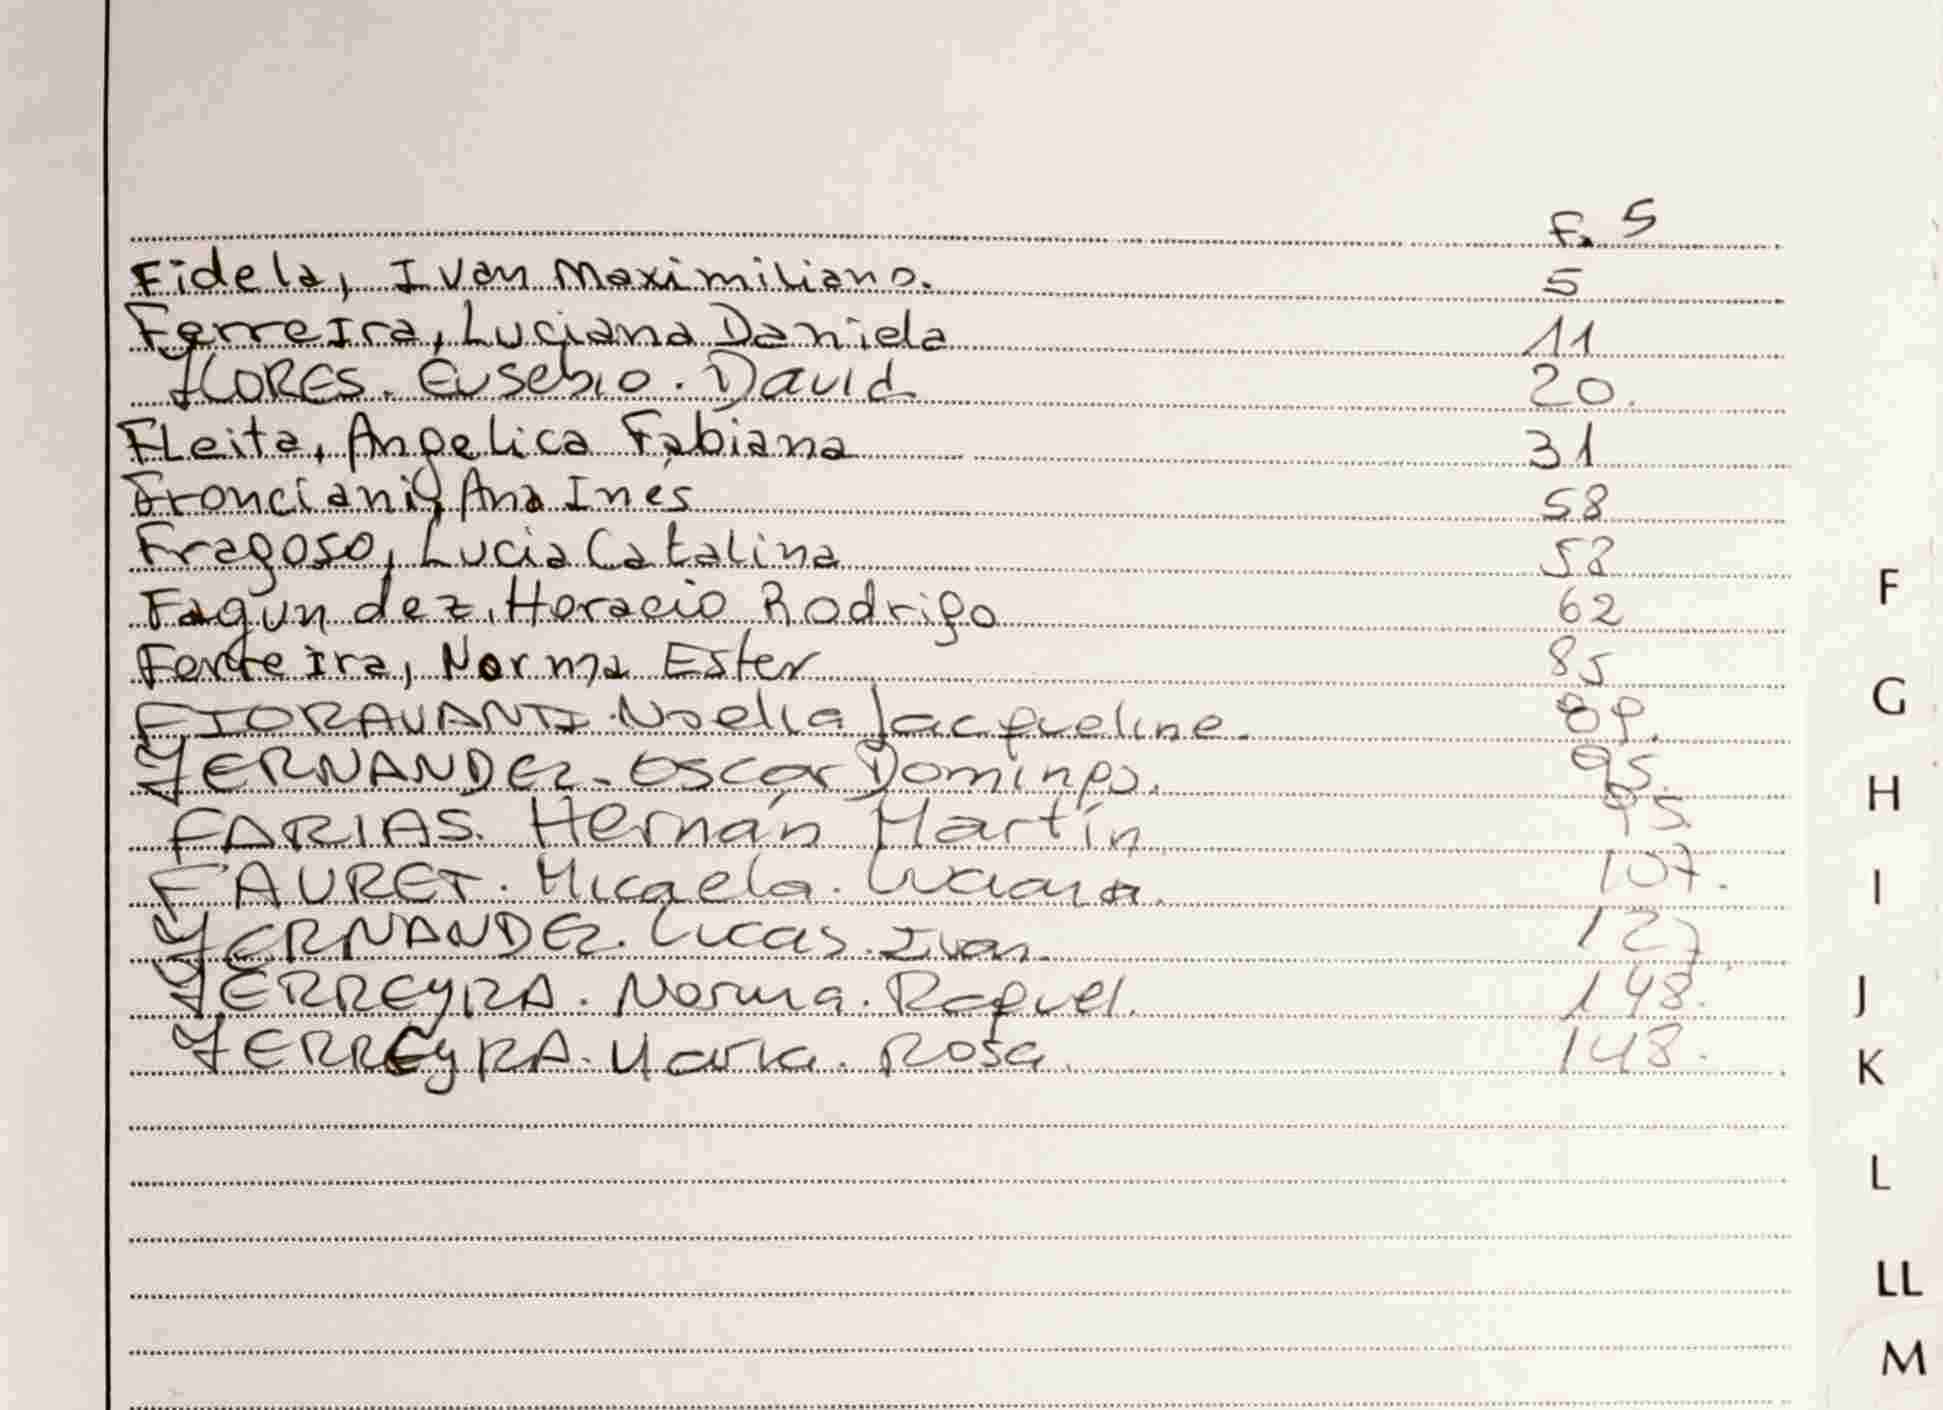 F. 5
Fidela, Ivan Maximiliano. 5
Ferreira, Luciana Daniela 11
FLORES. Eusebio. David 20.
FLeita, Angelica Fabiana 31
Fronciani, Ana Inés 58
Fragoso, Lucia Catalina 58
Fagundez, Horacio Rodrigo 62
Ferreira, Norma Ester 85
FIORAVANTI. Noelia Jacqueline. 89.
FERNANDEZ. Oscar Domingo. 95.
FARIAS. Hernán Martín 95.
FAURET. Micaela. Luciana. 107.
FERNANDEZ. Lucas. Ivan. 127.
FERREYRA. Norma. Raquel. 148.
FERREYRA. Maria. Rosa. 148.
F
G
H
I
J
K
L
LL
M